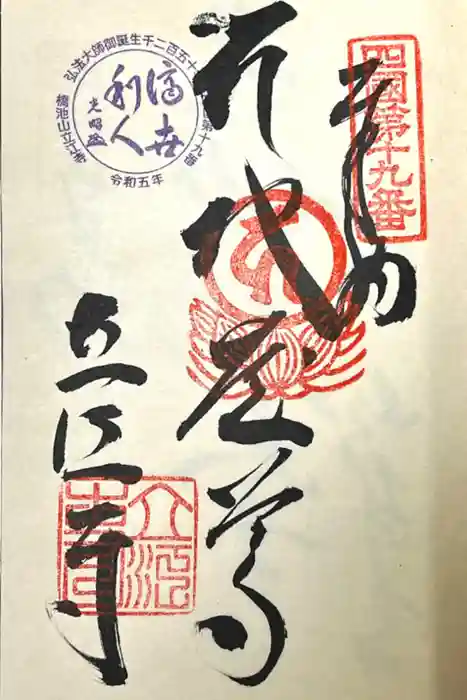 四國第十九番
奉納
地蔵尊
立江寺
弘法大師御誕生千二百五十
第十九番
橋池山立江寺
令和五年
済世
利人